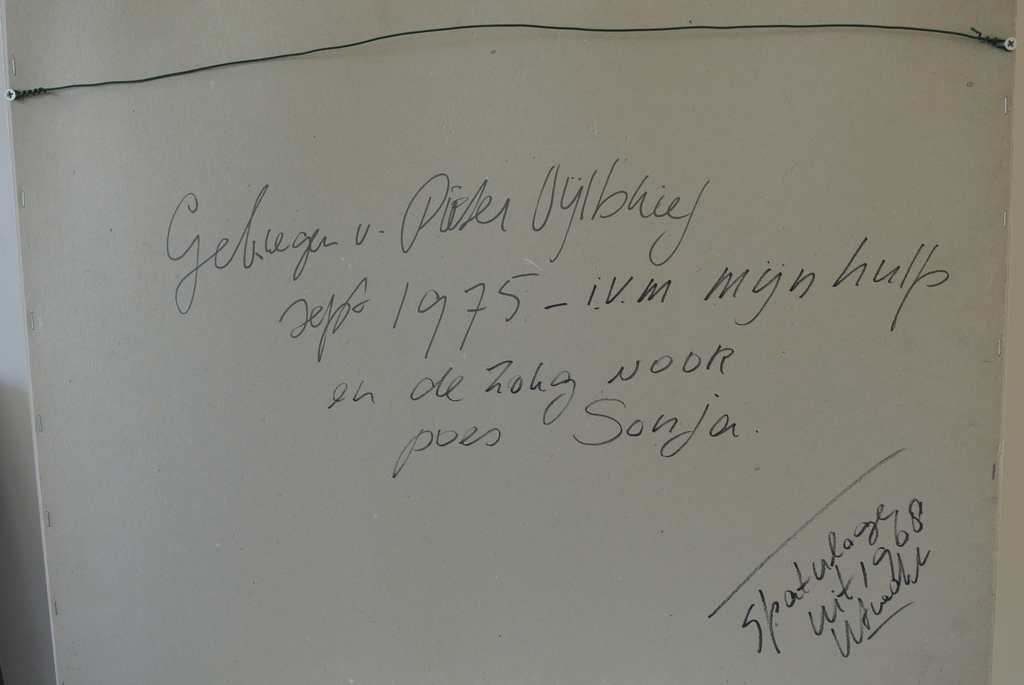 Gekregen v. Pieter Vijlbrief
sept 1975 - i.v.m mijn hulp
en de zorg voor
poes Sonja.
Spatulage
uit 1968
Utrecht